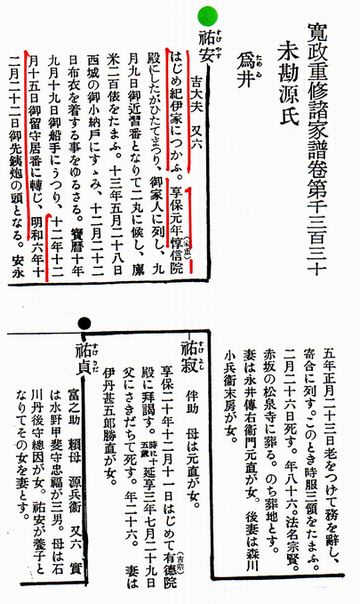 寬政重修諸家譜卷第千三百三十
未勘源氏
爲井
ためゐ
祐安
すけやす
吉大夫 又六
はじめ紀伊家につかふ。享保元年惇信院(家重)
殿にしたがひたてまつり、御家人に列し、九
月九日御近習番となりて二丸に候し、廩
米二百俵をたまふ。十三年五月二十八日
西城の御小納戸にすゝみ、十二月二十二
日布衣を着する事をゆるさる。寶曆十年
九月十九日御船手にうつり、十二年十二
月十五日御留守居番に轉じ、明和六年十
二月二十二日御先鉄炮の頭となる。安永
五年正月二十三日老をつげて務を辭し、
寄合に列す。このとき時服三領をたまふ。十
二月二十六日死す。年八十六。法名宗賢。
赤坂の松泉寺に葬る。のち葬地とす。
妻は永井傳右衞門元直が女。後妻は森川
小兵衞末房が女。
祐寂
すけよし
伴助 母は元直が女。
享保二十年十二月十一日はじめて有德院(吉宗)
殿に拜謁す。時に十五歲 延享三年七月二十九日
父にさきだちて死す。年二十六。 妻は
伊丹甚五郎勝直が女。
祐貞
すけさだ
富之助 賴母 源兵衞 又六 實
は水野甲斐守忠福が三男。母は石
川丹後守總因が女。祐安が養子と
なりてその女を妻とす。